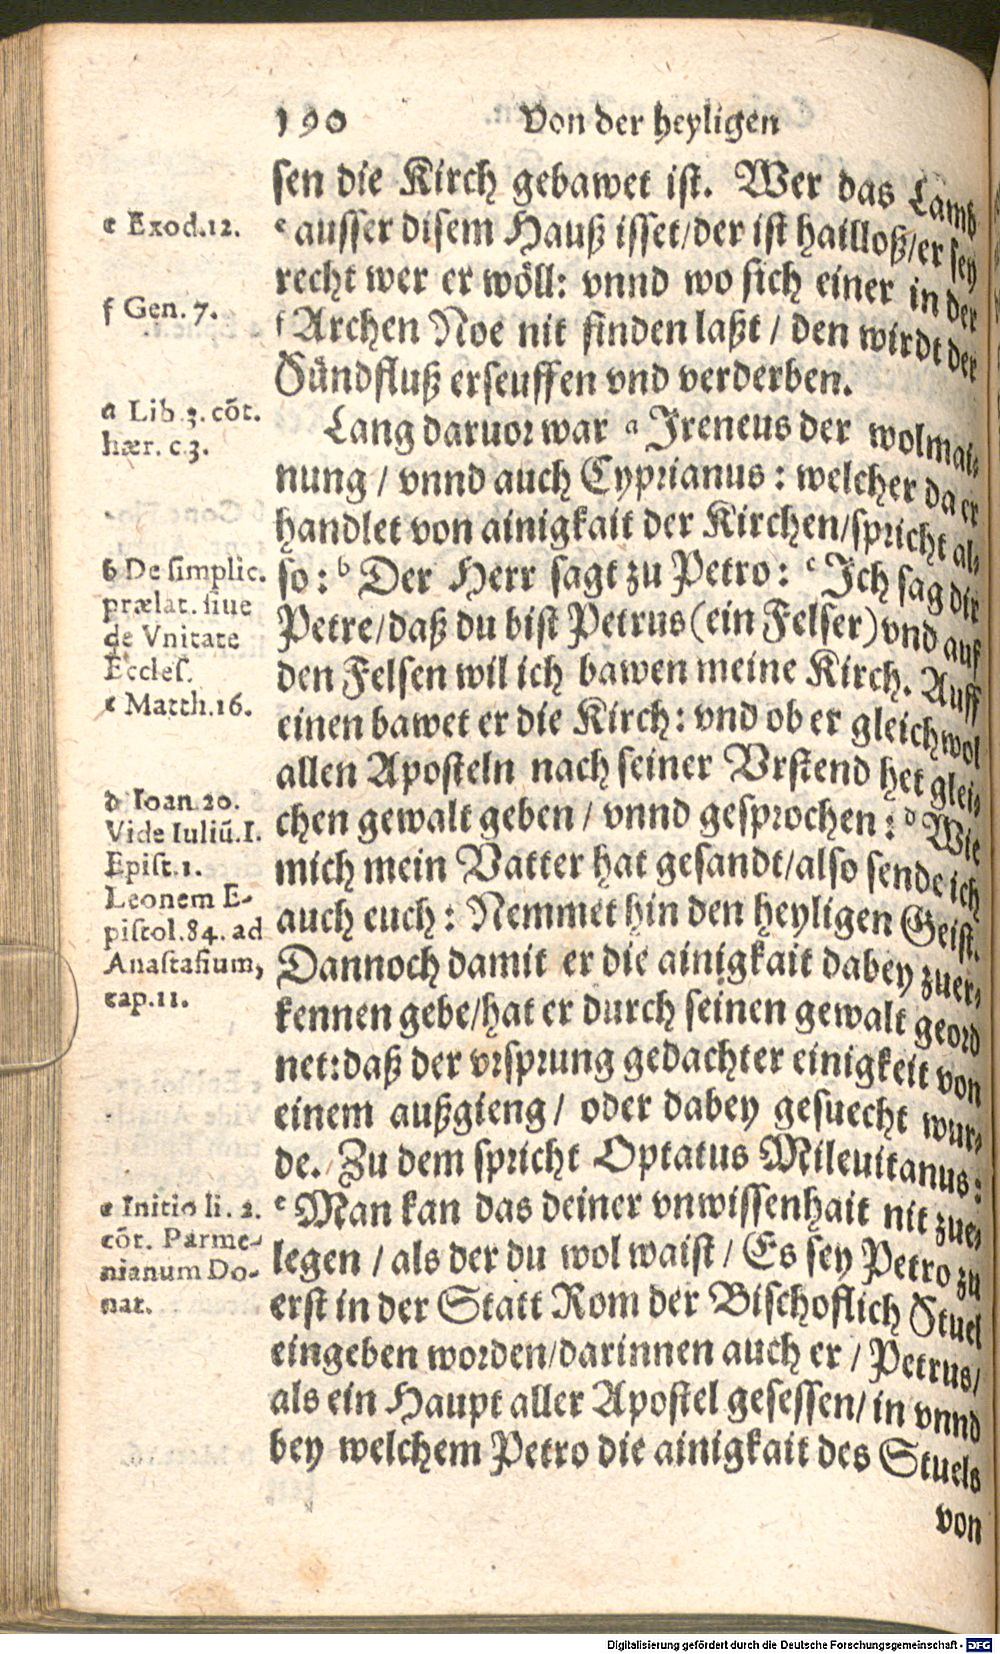 190 Von der heyligen
sen die Kirch gebawet ist. Wer das Lamb
e Exod.12.
e ausser disem Hauß isset/der ist hailloß/er sey
recht wer er wöll: vnnd wo sich einer in der
f Gen. 7.
f Archen Noe nit finden laßt / den wirdt der
Sündfluß erseuffen vnd verderben.
a Lib.3. cõt.
hær. c.3.
Lang daruor war a Ireneus der wolmai-
nung / vnnd auch Cyprianus : welcher da er
handlet von ainigkait der Kirchen/spricht al-
b De simplic.
prælat. siue
de Vnitate
Eccles.
so: b Der Herr sagt zu Petro: c Ich sag dir
Petre/daß du bist Petrus (ein Felser) vnd auf
den Felsen wil ich bawen meine Kirch. Auff
c Matth.16.
einen bawet er die Kirch: vnd ob er gleichwol
allen Aposteln nach seiner Vrstend het glei-
d Ioan.20.
Vide Iuliũ.I.
Epist.1.
Leonem E-
pistol.84. ad
Anastasium,
cap.11.
chen gewalt geben / vnnd gesprochen: d Wie
mich mein Vatter hat gesandt/also sende ich
auch euch: Nemmet hin den heyligen Geist.
Dannoch damit er die ainigkait dabey zuer-
kennen gebe/hat er durch seinen gewalt geord
net:daß der vrsprung gedachter einigkeit von
einem außgieng / oder dabey gesuecht wur-
de. Zu dem spricht Optatus Mileuitanus:
e Initio li. 2.
cõt. Parme-
nianum Do-
nat.
e Man kan das deiner vnwissenhait nit zue-
legen / als der du wol waist / Es sey Petro zu
erst in der Statt Rom der Bischoflich Stuel
eingeben worden/darinnen auch er / Petrus/
als ein Haupt aller Apostel gesessen/ in vnnd
bey welchem Petro die ainigkait des Stuels
von
Digitalisierung gefördert durch die Deutsche Forschungsgemeinschaft - DFG